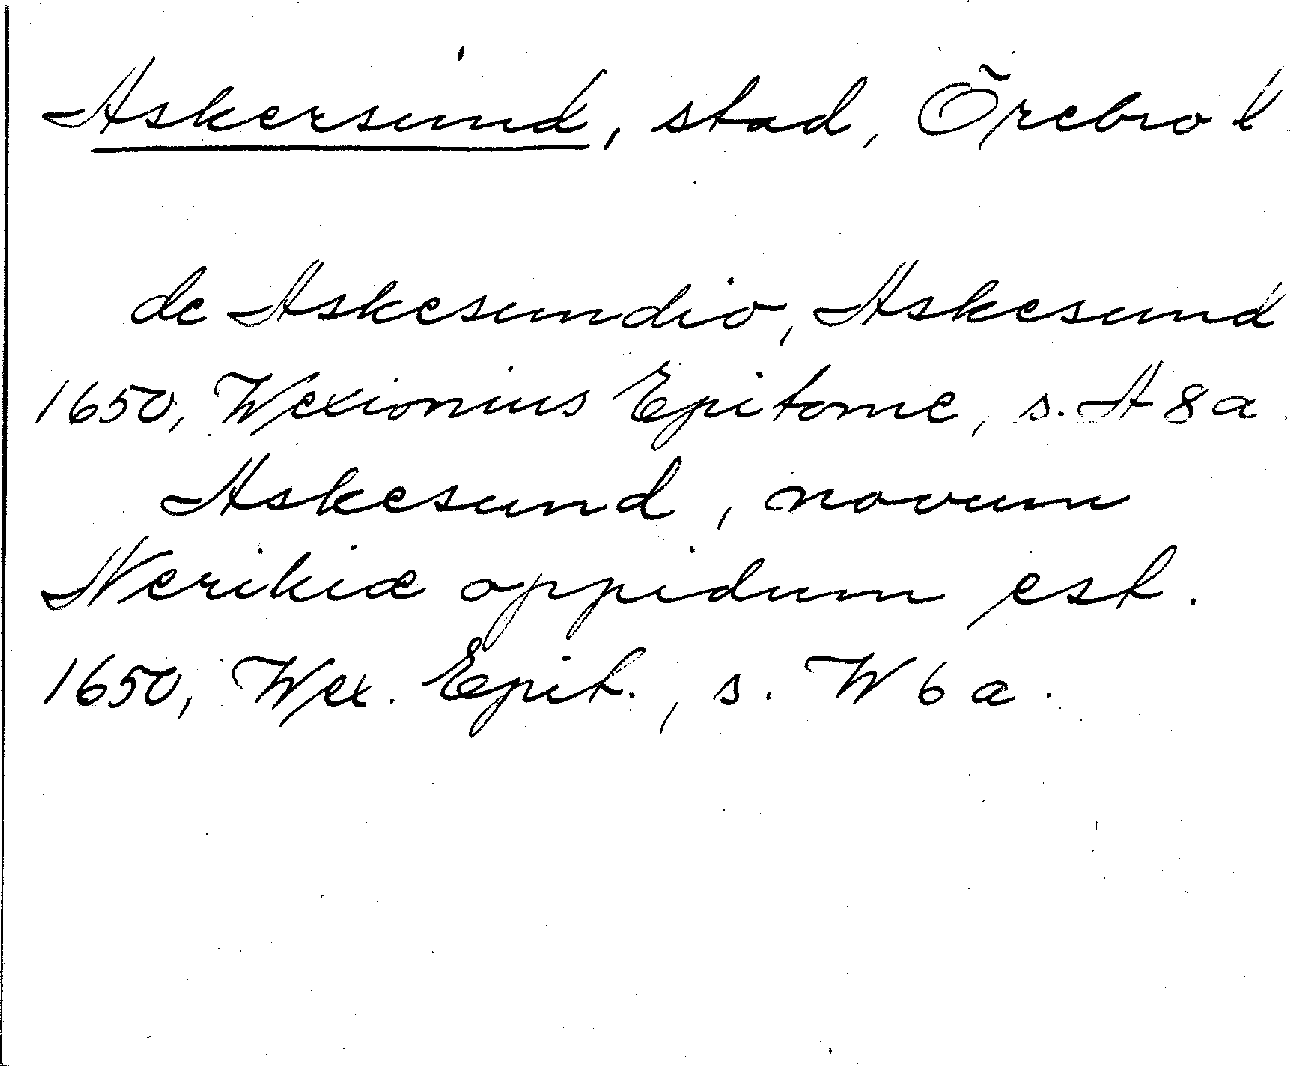 Askersund, stad, Örebro l
de Askesundio, Askesund
1650, Wexionius Epitome, s. A 8 a
Askesund, novum
Nerikiæ oppidum est.
1650, Wex. Epit., s. W 6 a.